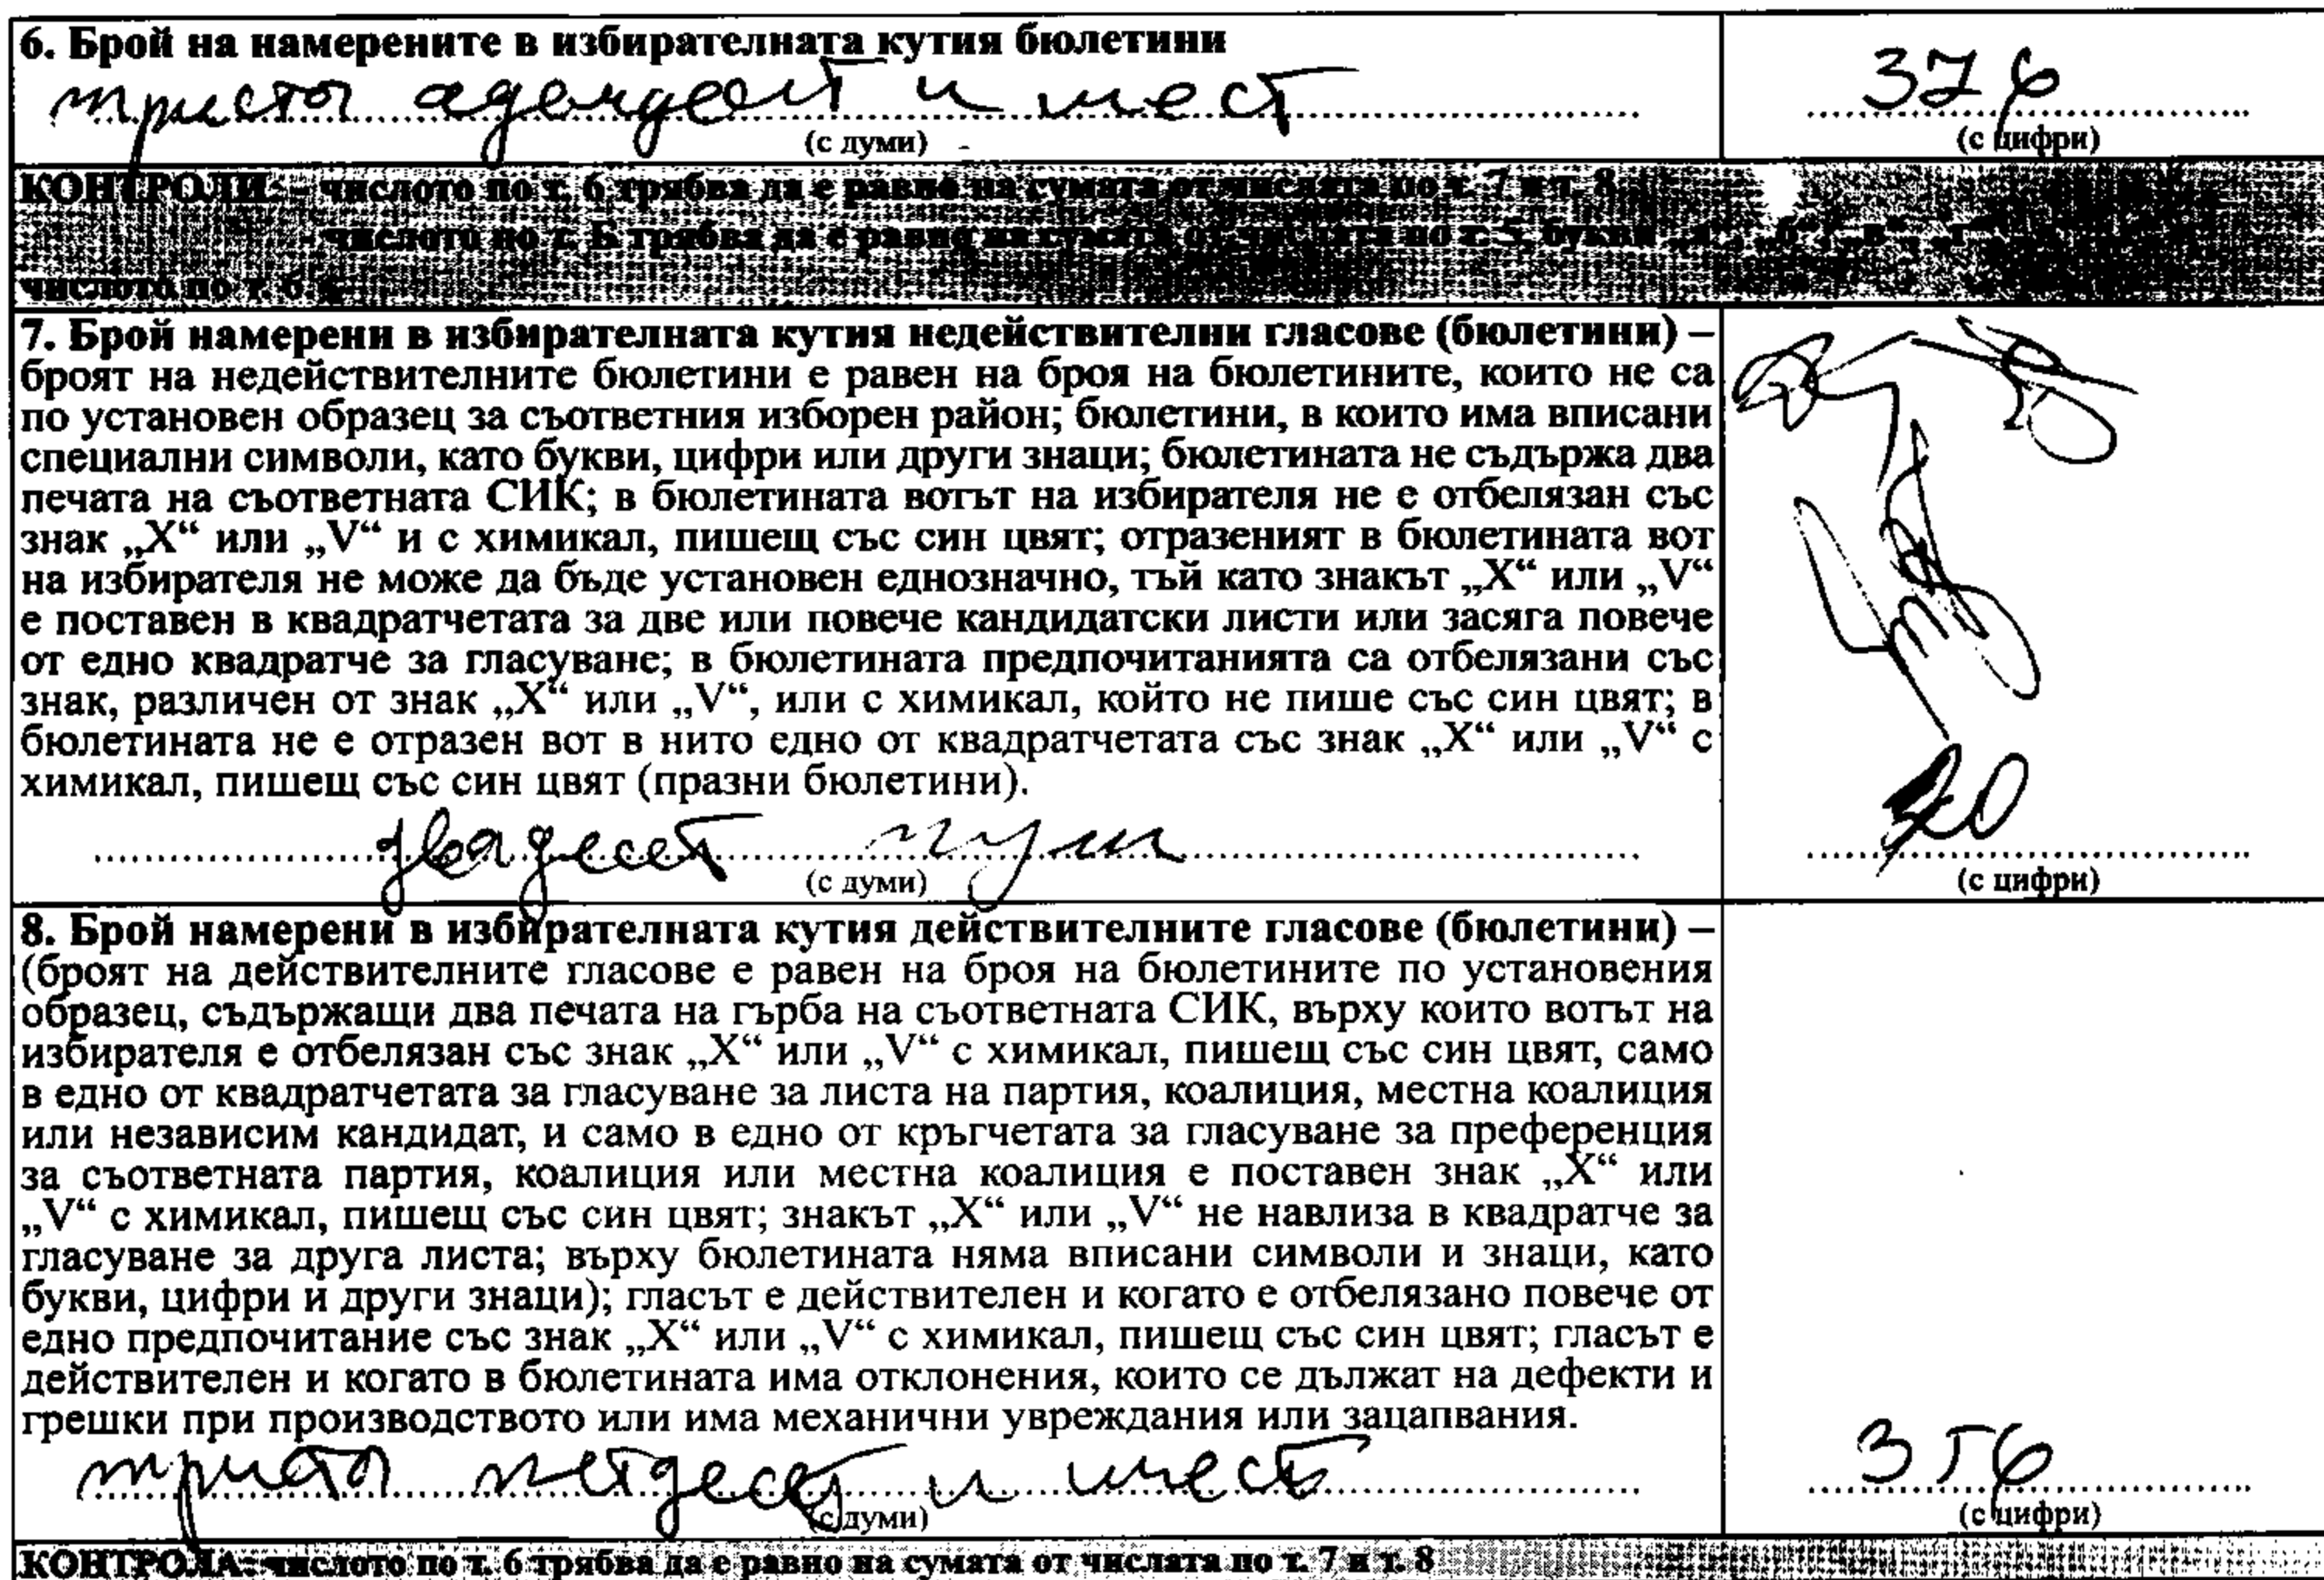 6. Брой на намерените в избирателната кутия бюлетини
триста и шест 376
(с думи) (с цифри)
КОНТРОЛИ: – числото по т. 6 трябва да е равно на сумата от числата по т. 7 и т. 8.
- числото по т. Б трябва да е равно на сумата от числата по т. 5, букви „а“, „б“, „в“, „г“
числото по т. 6
7. Брой намерени в избирателната кутия недействителни гласове (бюлетини) –
броят на недействителните бюлетини е равен на броя на бюлетините, които не са
по установен образец за съответния изборен район; бюлетини, в които има вписани
специални символи, като букви, цифри или други знаци; бюлетината не съдържа два
печата на съответната СИК; в бюлетината вотът на избирателя не е отбелязан със
знак „X“ или „V“ и с химикал, пишещ със син цвят; отразеният в бюлетината вот
на избирателя не може да бъде установен еднозначно, тъй като знакът „X“ или „V“
е поставен в квадратчетата за две или повече кандидатски листи или засяга повече
от едно квадратче за гласуване; в бюлетината предпочитанията са отбелязани със
знак, различен от знак „X“ или „V“, или с химикал, който не пише със син цвят; в
бюлетината не е отразен вот в нито едно от квадратчетата със знак „X“ или „V“ с
химикал, пишещ със син цвят (празни бюлетини).
двадесет 20
(с думи) (с цифри)
8. Брой намерени в избирателната кутия действителните гласове (бюлетини) –
(броят на действителните гласове е равен на броя на бюлетините по установения
образец, съдържащи два печата на гърба на съответната СИК, върху които вотът на
избирателя е отбелязан със знак „X“ или „V“ с химикал, пишещ със син цвят, само
в едно от квадратчетата за гласуване за листа на партия, коалиция, местна коалиция
или независим кандидат, и само в едно от кръгчетата за гласуване за преференция
за съответната партия, коалиция или местна коалиция е поставен знак „X“ или
„V“ с химикал, пишещ със син цвят; знакът „X“ или „V“ не навлиза в квадратче за
гласуване за друга листа; върху бюлетината няма вписани символи и знаци, като
букви, цифри и други знаци); гласът е действителен и когато е отбелязано повече от
едно предпочитание със знак „X“ или „V“ с химикал, пишещ със син цвят; гласът е
действителен и когато в бюлетината има отклонения, които се дължат на дефекти и
грешки при производството или има механични увреждания или зацапвания.
триста петдесет и шест 356
(с думи) (с цифри)
КОНТРОЛА: числото по т. 6 трябва да е равно на сумата от числата по т. 7 и т. 8